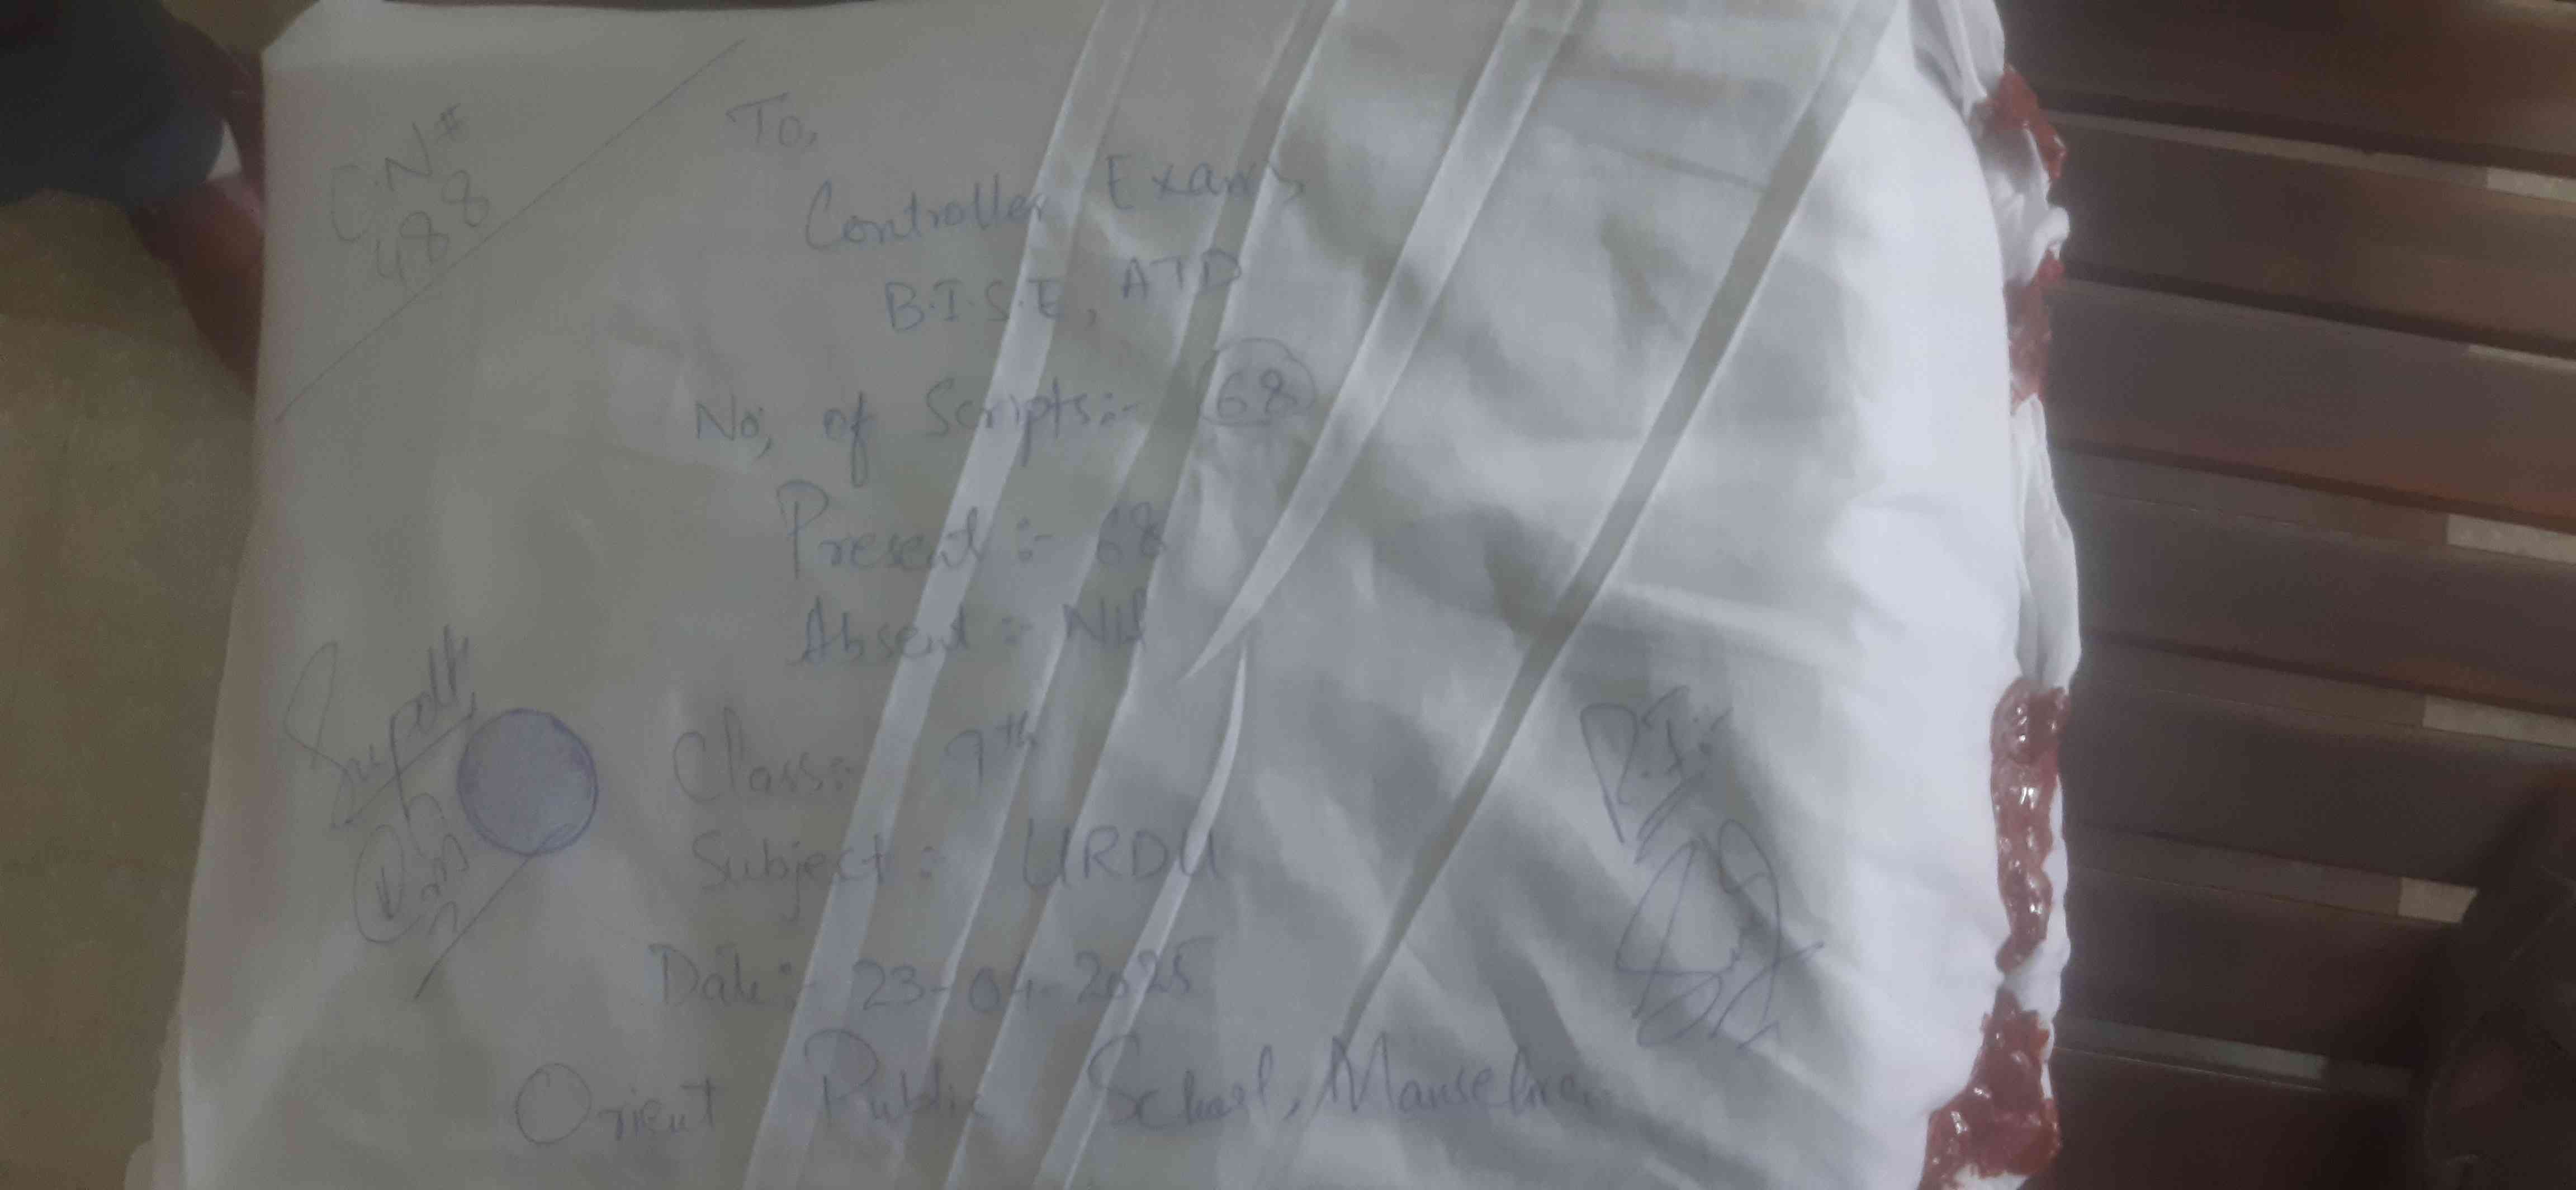 C.N #
488
To,
Controller Exams
B.I.S.E, ATD
No, of Scripts:- 68
Present :- 68
Absent :- Nil
Supdtt:
Class:- 9th
Subject :- URDU
Date :- 23-04-2025
Orient Public School, Mansehra